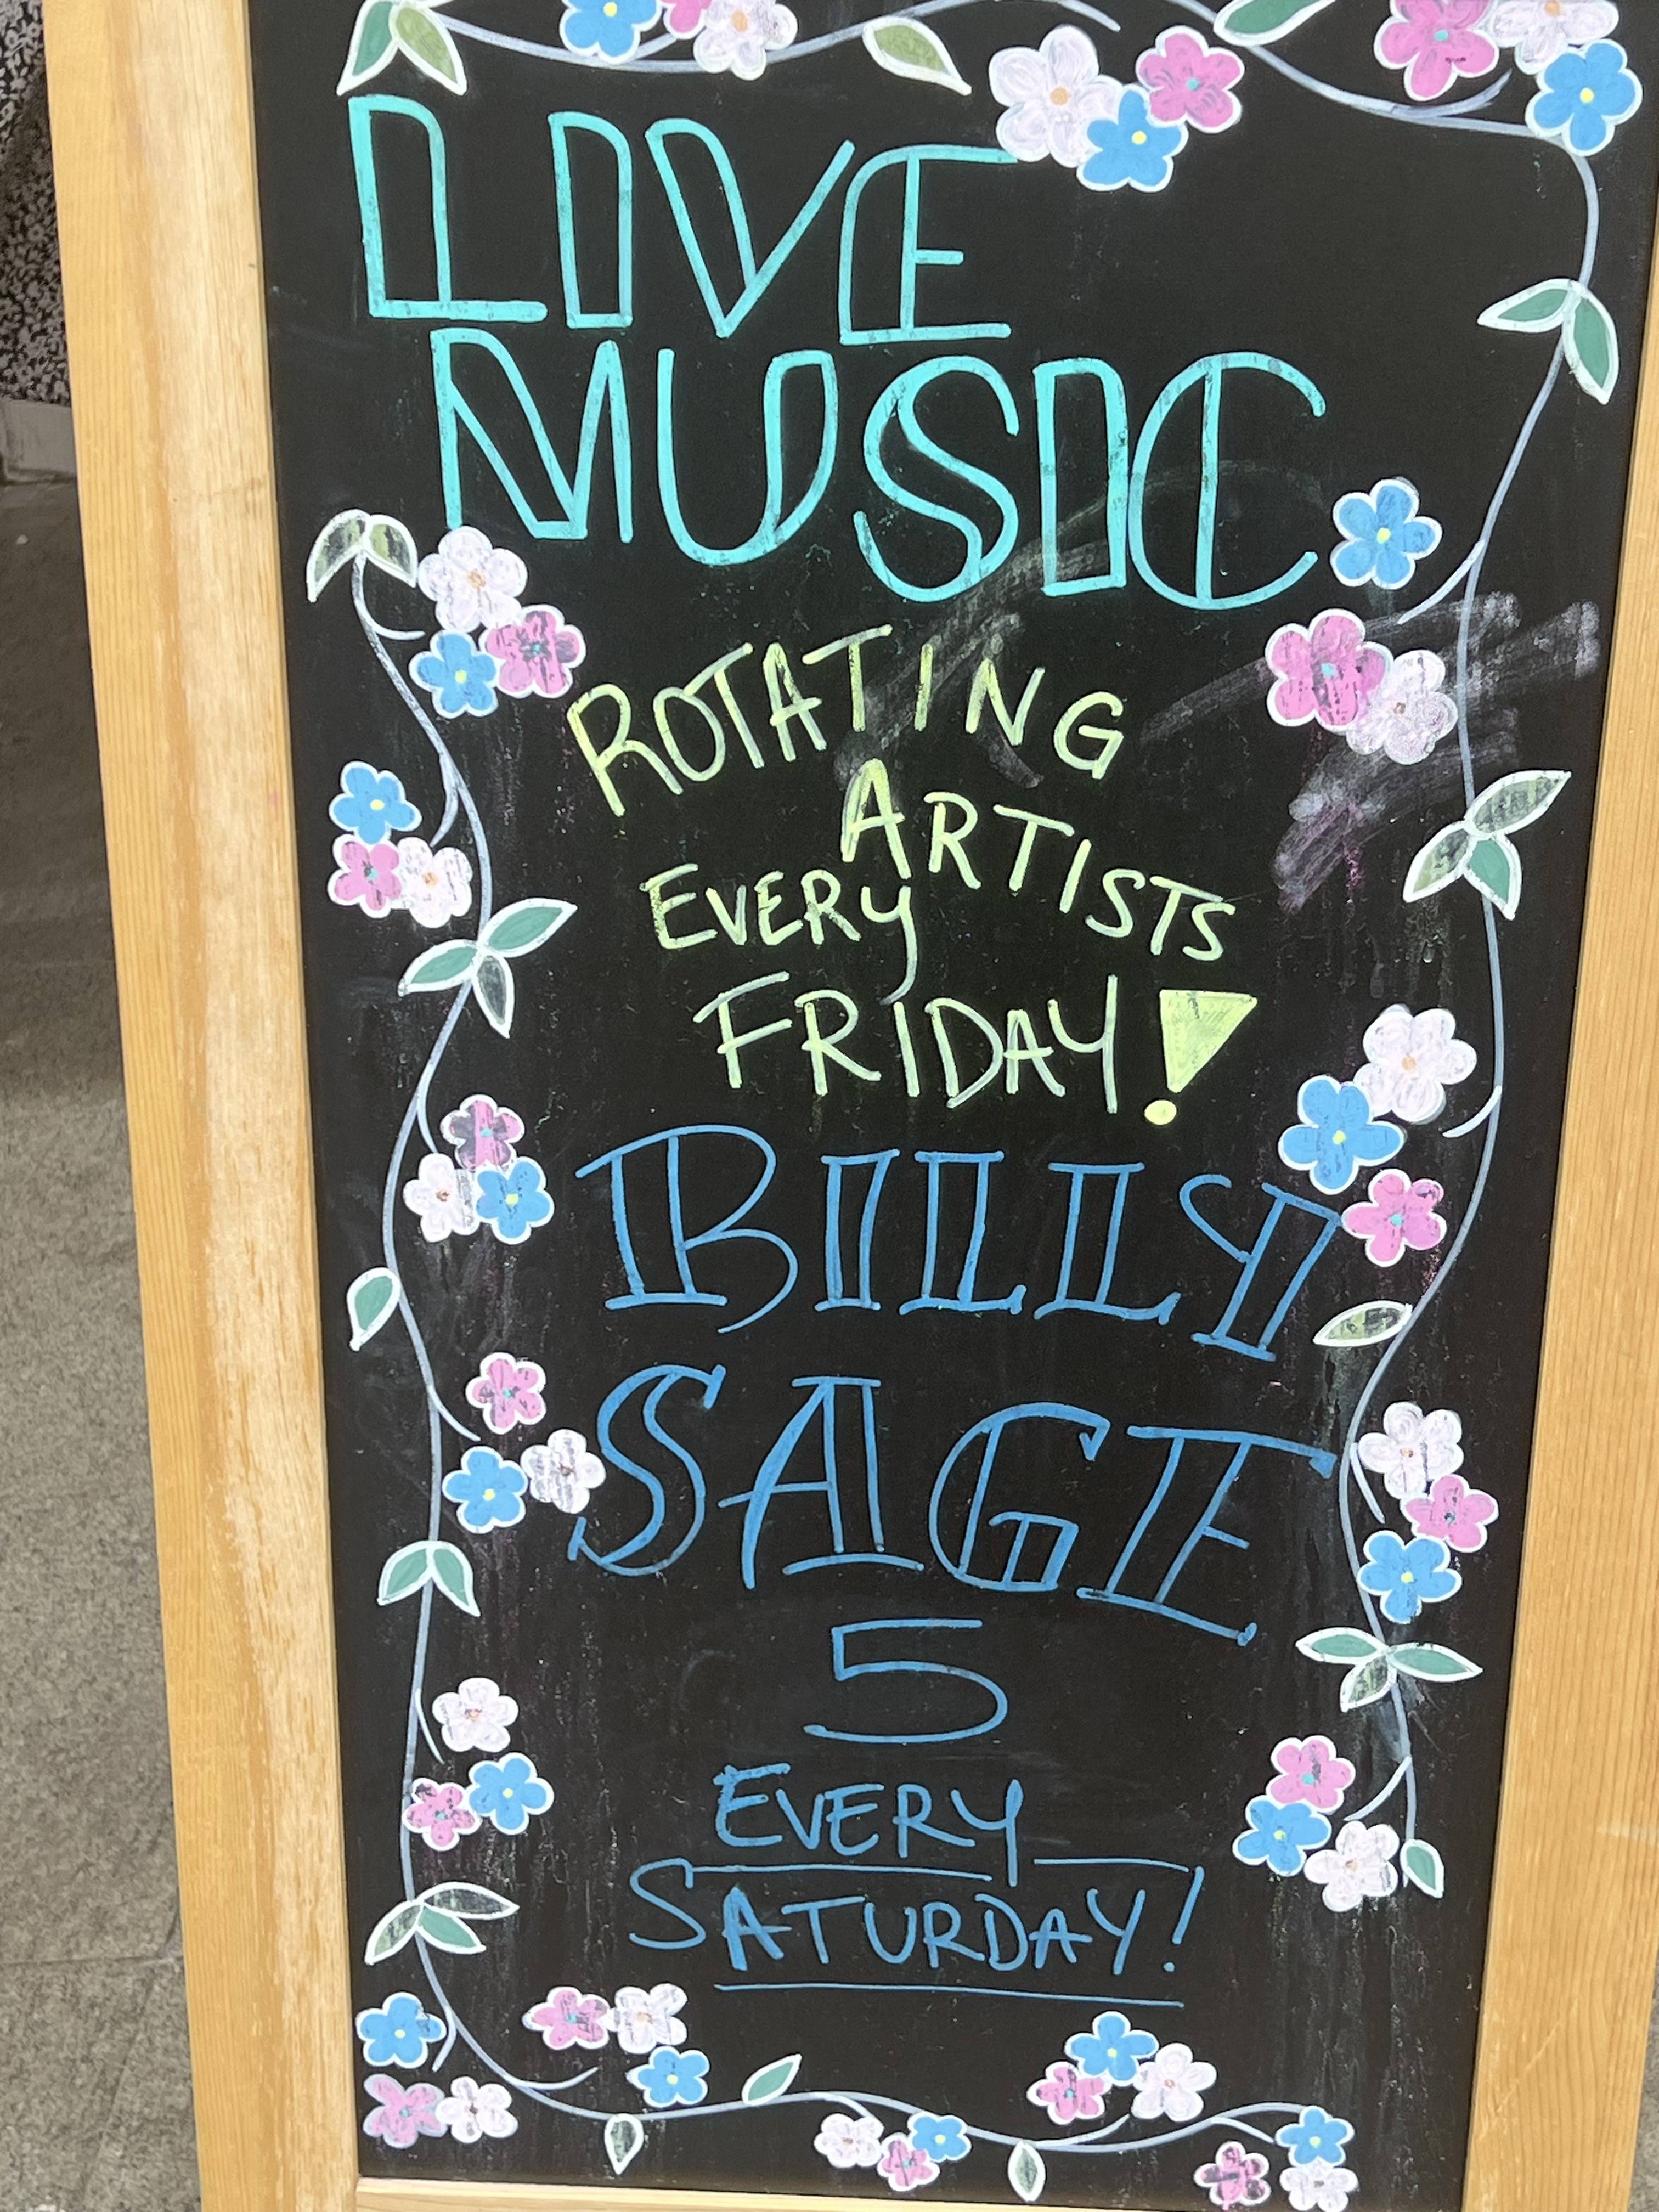 LIVE
MUSIC
ROTATING
ARTISTS
EVERY
FRIDAY!
BILLY
SAGE
5
EVERY
SATURDAY!